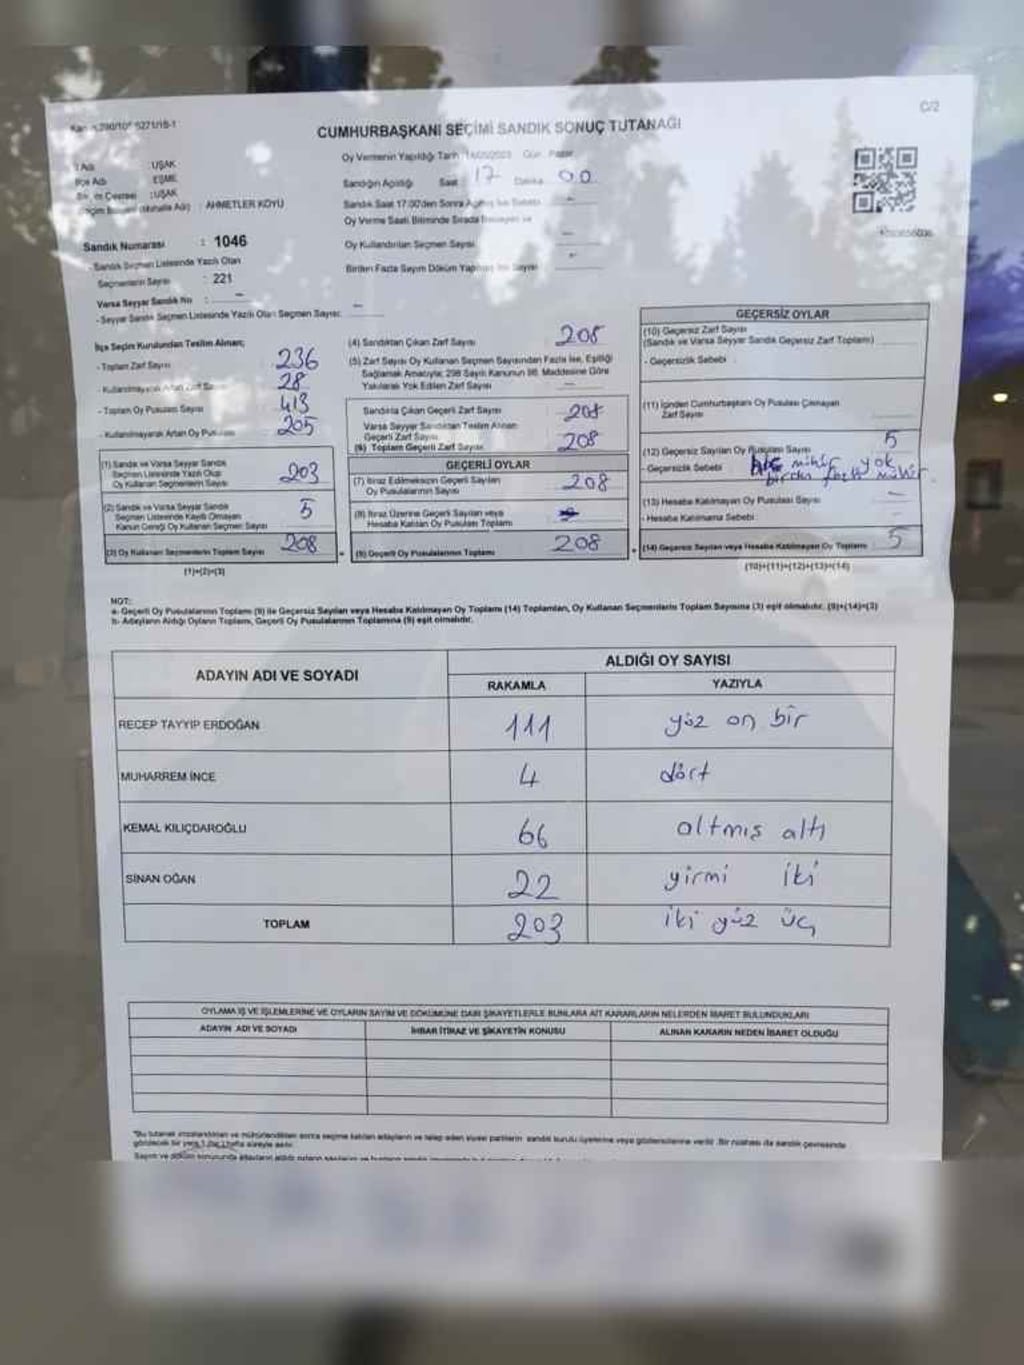 C/2
CUMHURBAŞKANI SEÇİMİ SANDIK SONUÇ TUTANAĞI
Oy Vermenin Yapıldığı Tarih Gün : Pazar
İl Adı : UŞAK
İlçe Adı : EŞME
Seçim Çevresi : UŞAK
(Mahalle Adı) : AHMETLER KÖYÜ
Sandığın Açıldığı Saat 17 Dakika 00
Sandık Saat 17:00'den Sonra
Oy Verme Saati Bitiminde Sırada
Oy Kullandırılan Seçmen Sayısı
Birden Fazla Sayım Döküm
Sandık Numarası : 1046
- Sandık Seçmen Listesinde Yazılı Olan
Seçmenlerin Sayısı : 221
Varsa Seyyar Sandık No : –
- Seyyar Sandık Seçmen Listesinde Yazılı Olan Seçmen Sayısı: –
İlçe Seçim Kurulundan Teslim Alınan;
- Toplam Zarf Sayısı 236
- Kullanılmayarak Artan Zarf Sayısı 28
- Toplam Oy Pusulası Sayısı 413
- Kullanılmayarak Artan Oy Pusulası 205
(1) Sandık ve Varsa Seyyar Sandık
Seçmen Listesinde Yazılı Olup
Oy Kullanan Seçmenlerin Sayısı 203
(2) Sandık ve Varsa Seyyar Sandık
Seçmen Listesinde Kayıtlı Olmayan
Kanun Gereği Oy Kullanan Seçmen Sayısı 5
(3) Oy Kullanan Seçmenlerin Toplam Sayısı 208
(1)+(2)=(3)
(4) Sandıktan Çıkan Zarf Sayısı 208
(5) Zarf Sayısı Oy Kullanan Seçmen Sayısından Fazla İse, Eşitliği
Sağlamak Amacıyla; 298 Sayılı Kanunun 98. Maddesine Göre
Yakılarak Yok Edilen Zarf Sayısı –
Sandıkta Çıkan Geçerli Zarf Sayısı 208
Varsa Seyyar Sandıktan Teslim Alınan
Geçerli Zarf Sayısı
(6) Toplam Geçerli Zarf Sayısı 208
GEÇERLİ OYLAR
(7) İtiraz Edilmeksizin Geçerli Sayılan
Oy Pusulalarının Sayısı 208
(8) İtiraz Üzerine Geçerli Sayılan veya
Hesaba Katılan Oy Pusulası Toplamı
(9) Geçerli Oy Pusulalarının Toplamı 208
GEÇERSİZ OYLAR
(10) Geçersiz Zarf Sayısı
(Sandık ve Varsa Seyyar Sandık Geçersiz Zarf Toplamı)
- Geçersizlik Sebebi
(11) İçinden Cumhurbaşkanı Oy Pusulası Çıkmayan
Zarf Sayısı
(12) Geçersiz Sayılan Oy Pusulası Sayısı 5
- Geçersizlik Sebebi mühür yok
birden fazla mühür
(13) Hesaba Katılmayan Oy Pusulası Sayısı –
- Hesaba Katılmama Sebebi
(14) Geçersiz Sayılan veya Hesaba Katılmayan Oy Toplamı 5
(10)+(11)+(12)+(13)=(14)
NOT:
a- Geçerli Oy Pusulalarının Toplamı (9) ile Geçersiz Sayılan veya Hesaba Katılmayan Oy Toplamı (14) Toplamları, Oy Kullanan Seçmenlerin Toplam Sayısına (3) eşit olmalıdır. (9)+(14)=(3)
b- Adayların Aldığı Oyların Toplamı, Geçerli Oy Pusulalarının Toplamına (9) eşit olmalıdır.
ADAYIN ADI VE SOYADI
ALDIĞI OY SAYISI
RAKAMLA YAZIYLA
RECEP TAYYİP ERDOĞAN 111 yüz on bir
MUHARREM İNCE 4 dört
KEMAL KILIÇDAROĞLU 66 altmış altı
SİNAN OĞAN 22 yirmi iki
TOPLAM 203 iki yüz üç
OYLAMA İŞ VE İŞLEMLERİNE VE OYLARIN SAYIM VE DÖKÜMÜNE DAİR ŞİKAYETLERLE BUNLARA AİT KARARLARIN NELERDEN İBARET BULUNDUKLARI
ADAYIN ADI VE SOYADI İHBAR İTİRAZ VE ŞİKAYETİN KONUSU ALINAN KARARIN NEDEN İBARET OLDUĞU
*Bu tutanak imzalandıktan ve mühürlendikten sonra seçime katılan adayların ve talep eden siyasi partilerin sandık kurulu üyelerine veya gözlemcilerine verilir. Bir nüshası da sandık çevresinde